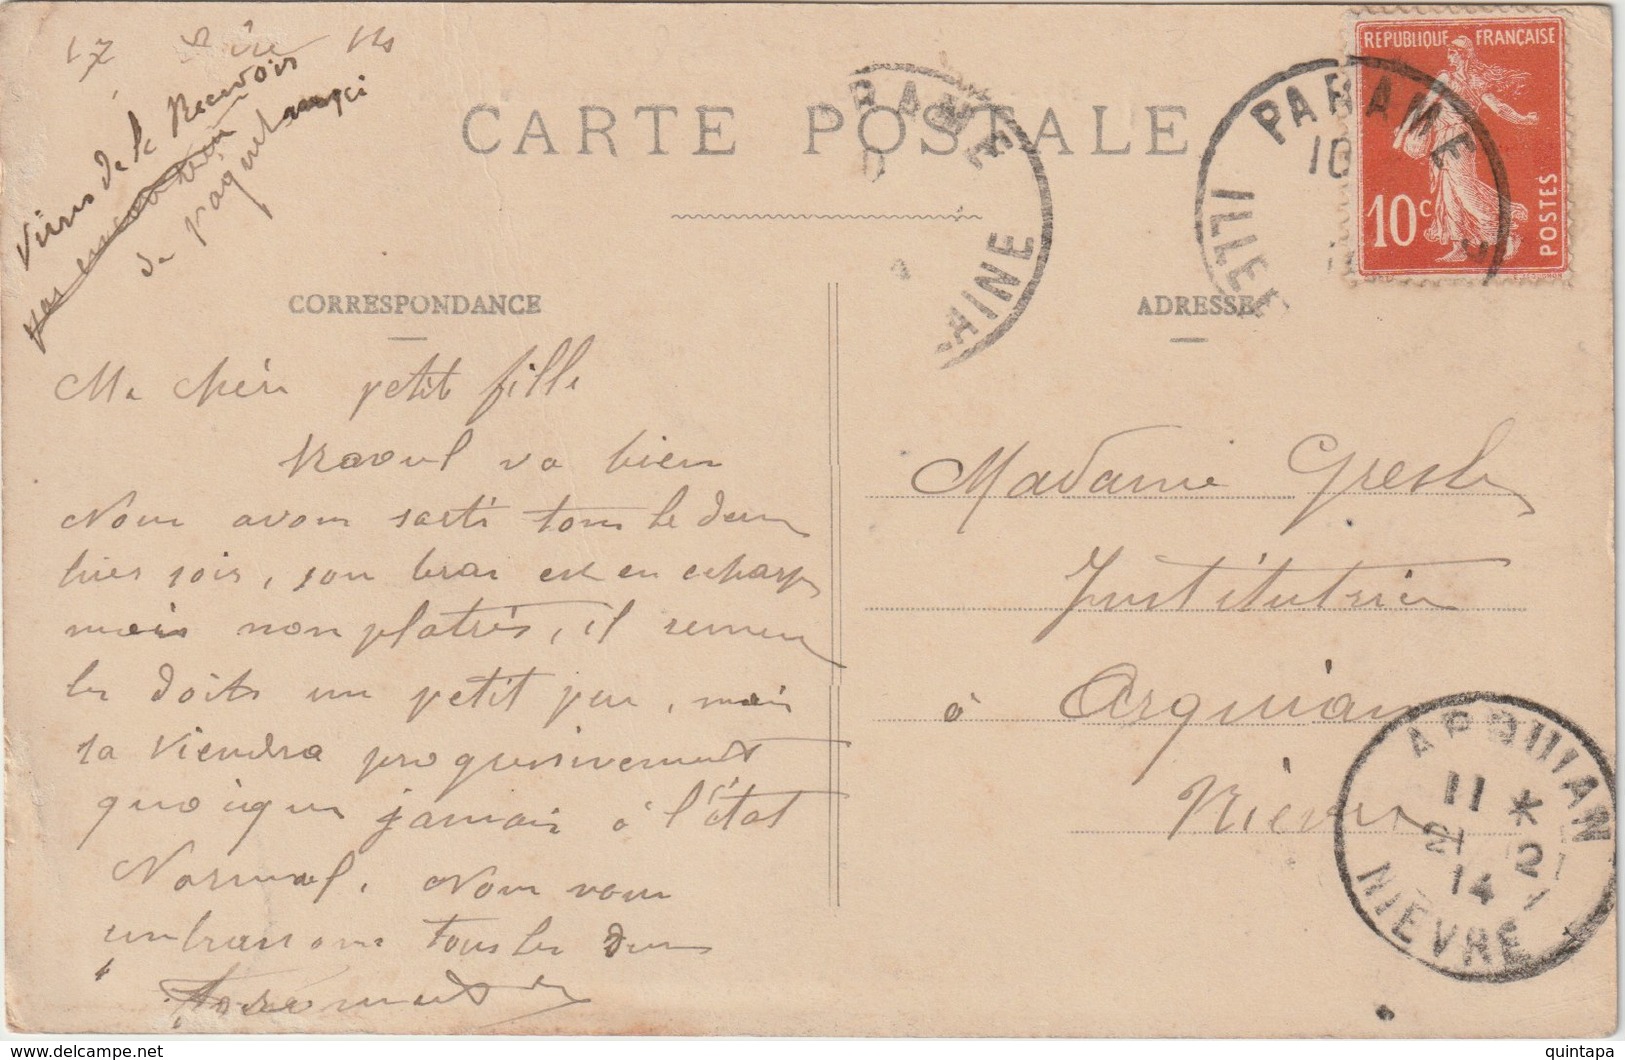 17 Xbre 14
Viens de le Recevoir
pas encore
de paquet
CARTE POSTALE
REPUBLIQUE FRANÇAISE
10c
POSTES
PARAME
10
ILLE
RAME
AINE
CORRESPONDANCE
ADRESSE
Ma chèr petit fille
Raoul va bien
Nour avom sorti tous le deux
hier soir, son bras est en echarpe
mais non platrés, il remeu
les doits un petit peu, mais
sa viendra progresivement
quoique jamais à l'état
Normal. Nous vous
embrassons tous les deux
Madame Gresle
Institutrice
à Arquian
Nièvre
ARQUIAN
11 *
21 12
14
NIÈVRE
www.delcampe.net
quintapa